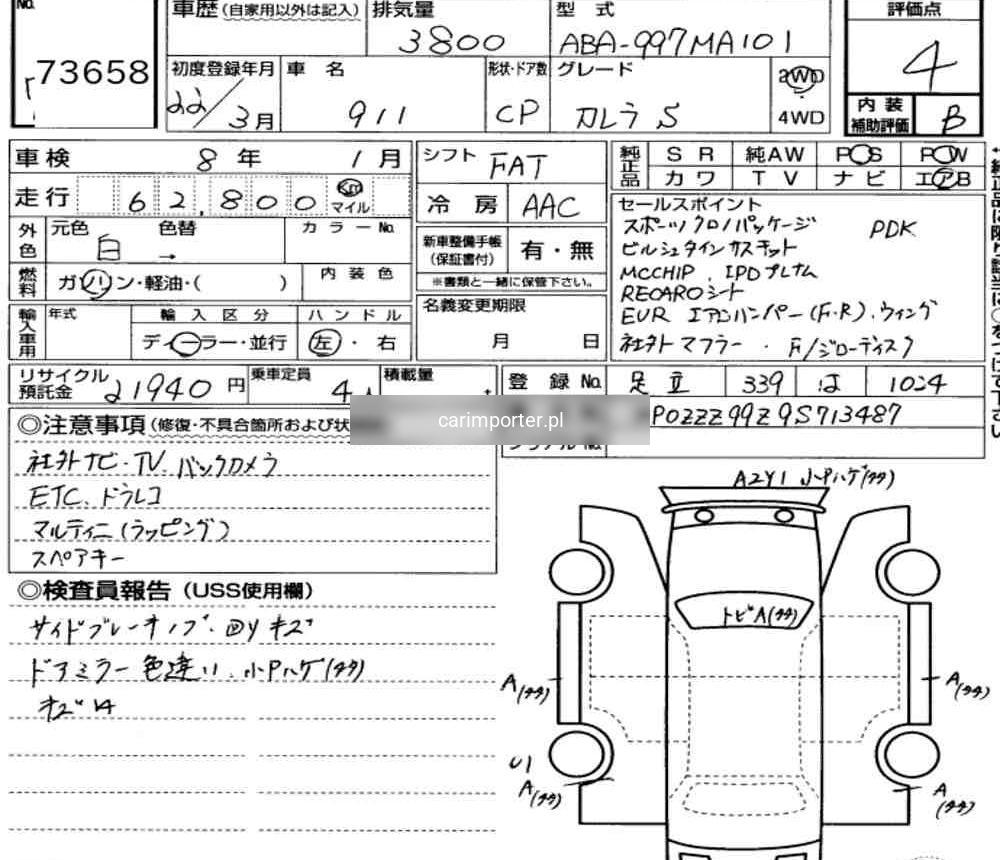 No.
73658
車歴(自家用以外は記入)
排気量
3800
型 式
ABA-997MA101
評価点
4
初度登録年月
22/3月
車 名
911
形状・ドア数
CP
グレード
カレラ S
2WD
4WD
内 装
補助評価
B
車検 8年 1月
走行 62,800 Km
マイル
外色
元色 色替
白 →
カ ラ ー No.
燃料
ガソリン・軽油・( )
内 装 色
輸入車用
年式
輸 入 区 分
ディーラー・並行
ハ ン ド ル
左・右
シフト FAT
冷 房 AAC
新車整備手帳
(保証書付)
有・無
※書類と一緒に保管下さい。
名義変更期限
月 日
純正品
S R 純AW P S P W
カ ワ T V ナ ビ エアB
セールスポイント
スポーツクロノパッケージ PDK
ビルシュタイン車高キット
MCCHIP, IPDプレナム
RECAROシート
EUR エアロバンパー(F・R), ウィング
社外マフラー・F/ジローディスク
リサイクル
預託金
21940円
乗車定員
4人
積載量
登 録 No. 足立 339 は 1024
P0ZZZ99Z9S713487
carimporter.pl
◎注意事項(修復・不具合箇所および状
社外ナビ・TV, バックカメラ
ETC, ドラレコ
マルティニ(ラッピング)
スペアキー
◎検査員報告(USS使用欄)
サイドブレーキノブ・回りキズ
ドアミラー色違い, 小Pハゲ(タタ)
キズ凹
A2Y1 小Pハゲ(タタ)
トビA(タタ)
A(タタ)
A(タタ)
U1
A(タタ)
A
(タタ)